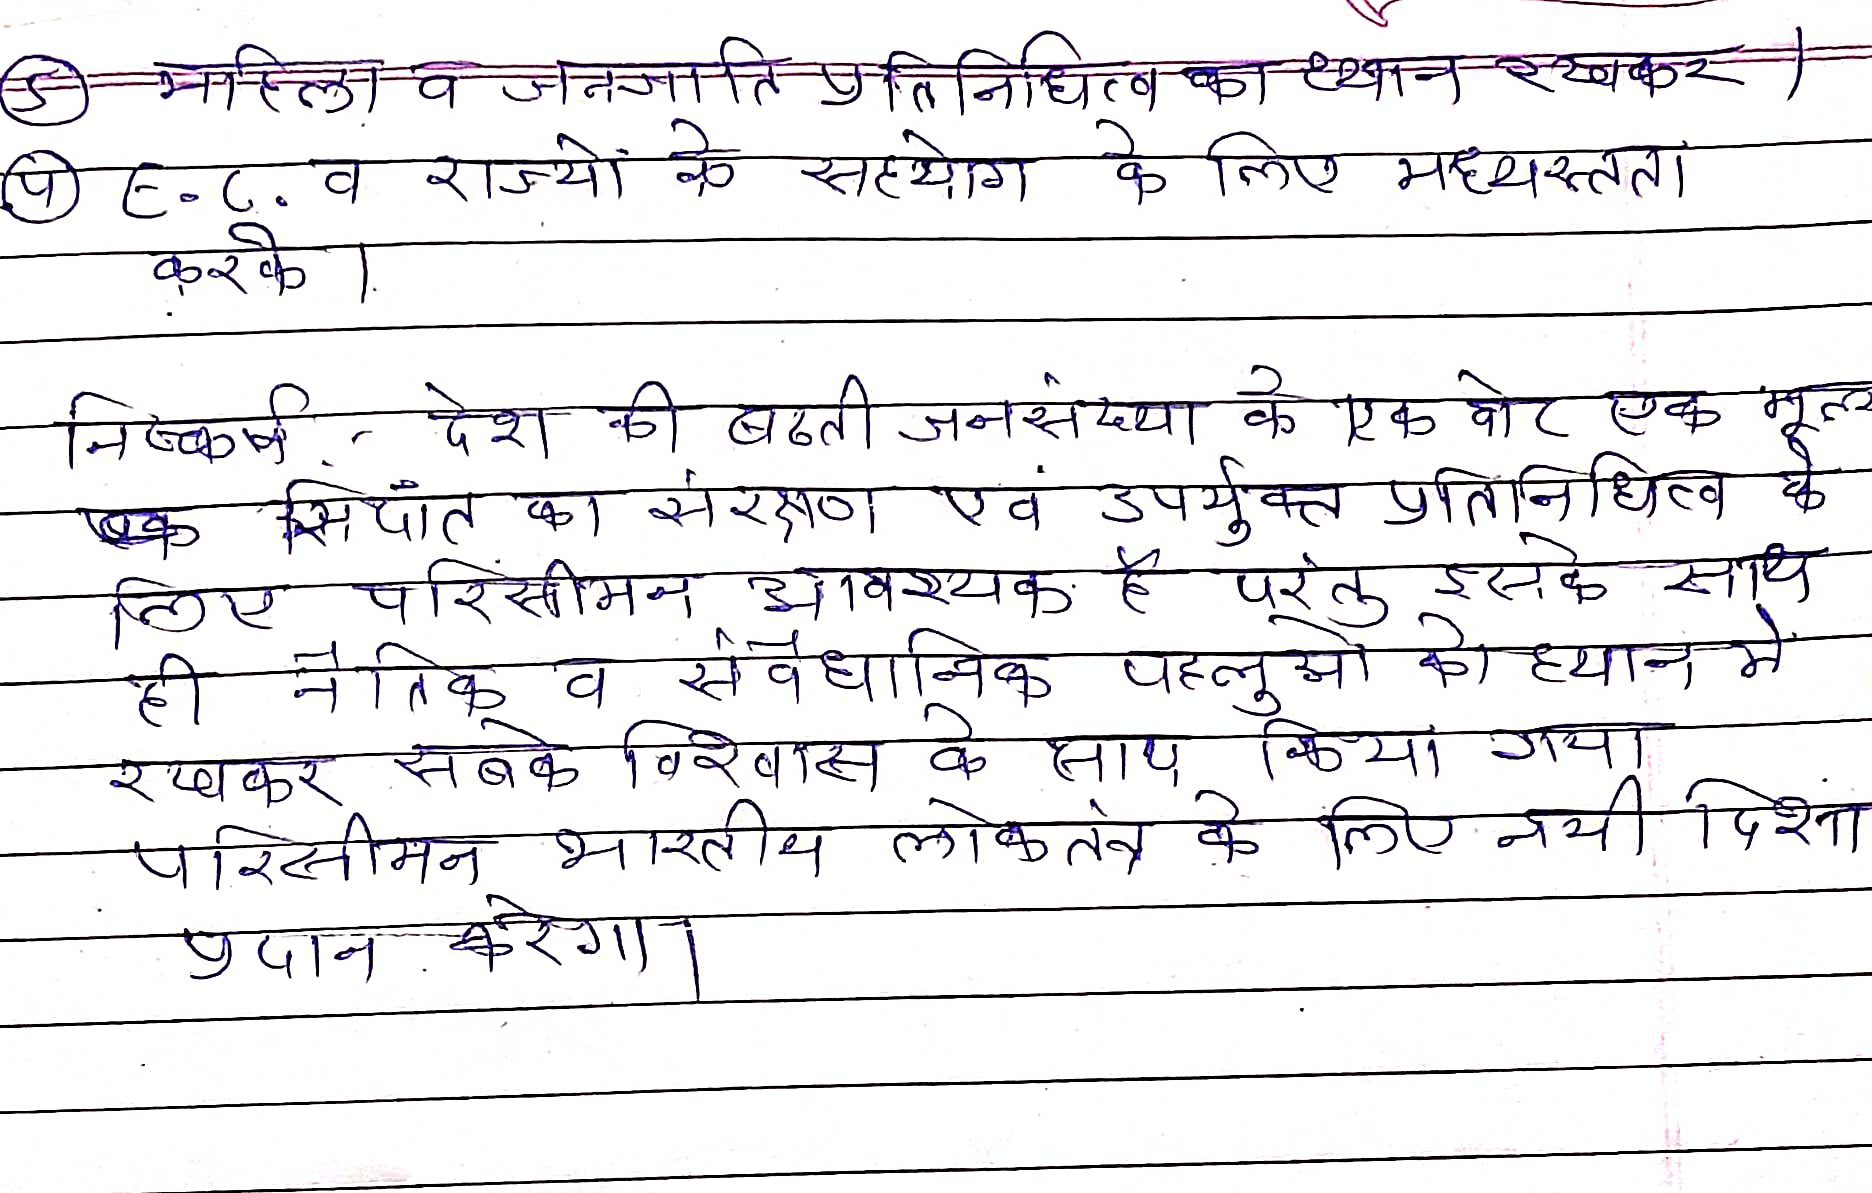 (S) महिला व जनजाति प्रतिनिधित्व का ध्यान रखकर।
E.C. व राज्यों के सहयोग के लिए मध्यस्तता
करके।
निष्कर्ष :- देश की बढती जनसंख्या के एक वोट एक मूल्य
सिद्धांत का संरक्षण एवं उपर्युक्त प्रतिनिधित्व के
लिए परिसीमन आवश्यक है परंतु इसके साथ
ही नैतिक व संवैधानिक पहलुओं को ध्यान में
रखकर सबके विश्वास के साथ किया गया
परिसीमन भारतीय लोकतंत्र के लिए नयी दिशा
प्रदान करेगा।